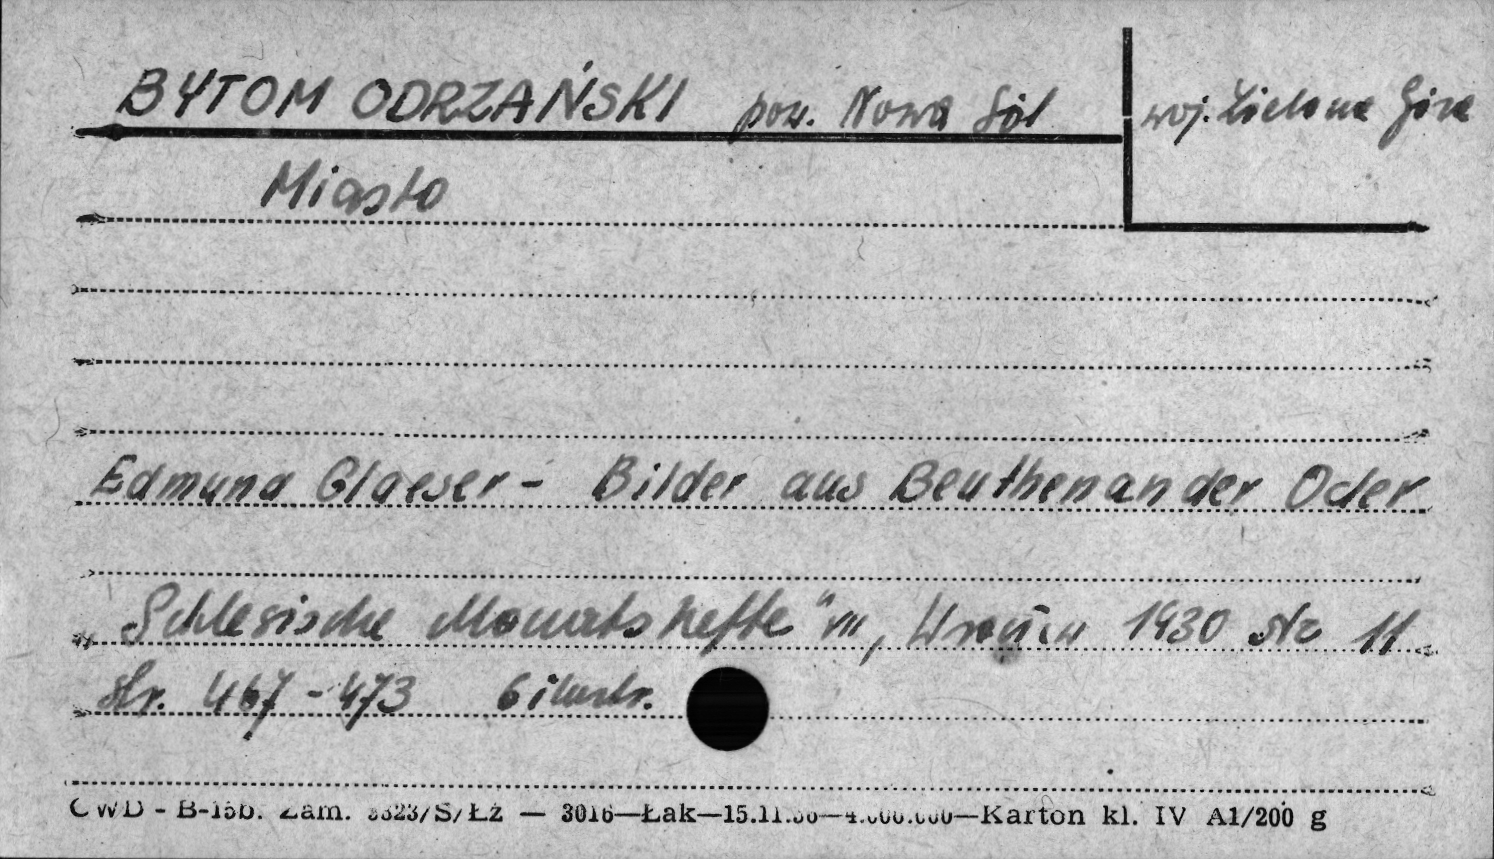 BYTOM ODRZAŃSKI pow. Nowa Sól woj. Zielona Góra
Miasto
Edmund Glaeser - Bilder aus Beuthen an der Oder
Schlesische Monatshefte" VII, 1930 Nr 11
str. 467-473 6 ilustr.
CWD - B-15b. Zam. 3323/S/Łż — 3016—Łak—15.11.56—4.000.000—Karton kl. IV A1/200 g